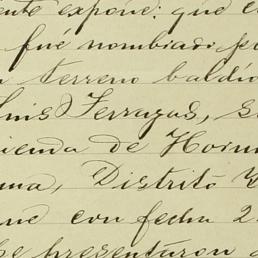 ente expone: que e
fué nombrado p
terreno baldío
Luis Terrazas, s
ienda de Horn
una, Distrito
que con fecha 2
presentaron